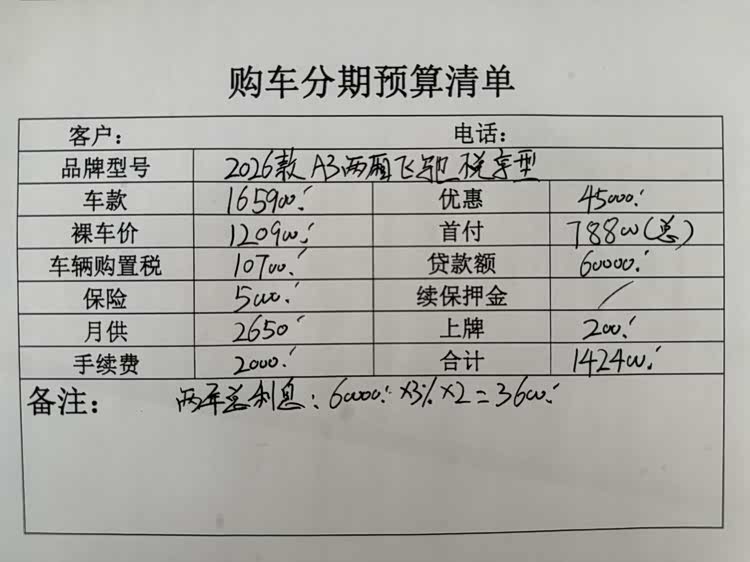 购车分期预算清单
客户: 电话:
品牌型号 2026款 A3两厢飞驰 悦享型
车款 165900.- 优惠 45000.-
裸车价 120900.- 首付 78800(总)
车辆购置税 10700.- 贷款额 60000.-
保险 5000.- 续保押金 /
月供 2650 上牌 200.-
手续费 2000.- 合计 142400.-
备注: 两年总利息: 60000.- ×3% ×2 = 3600.-